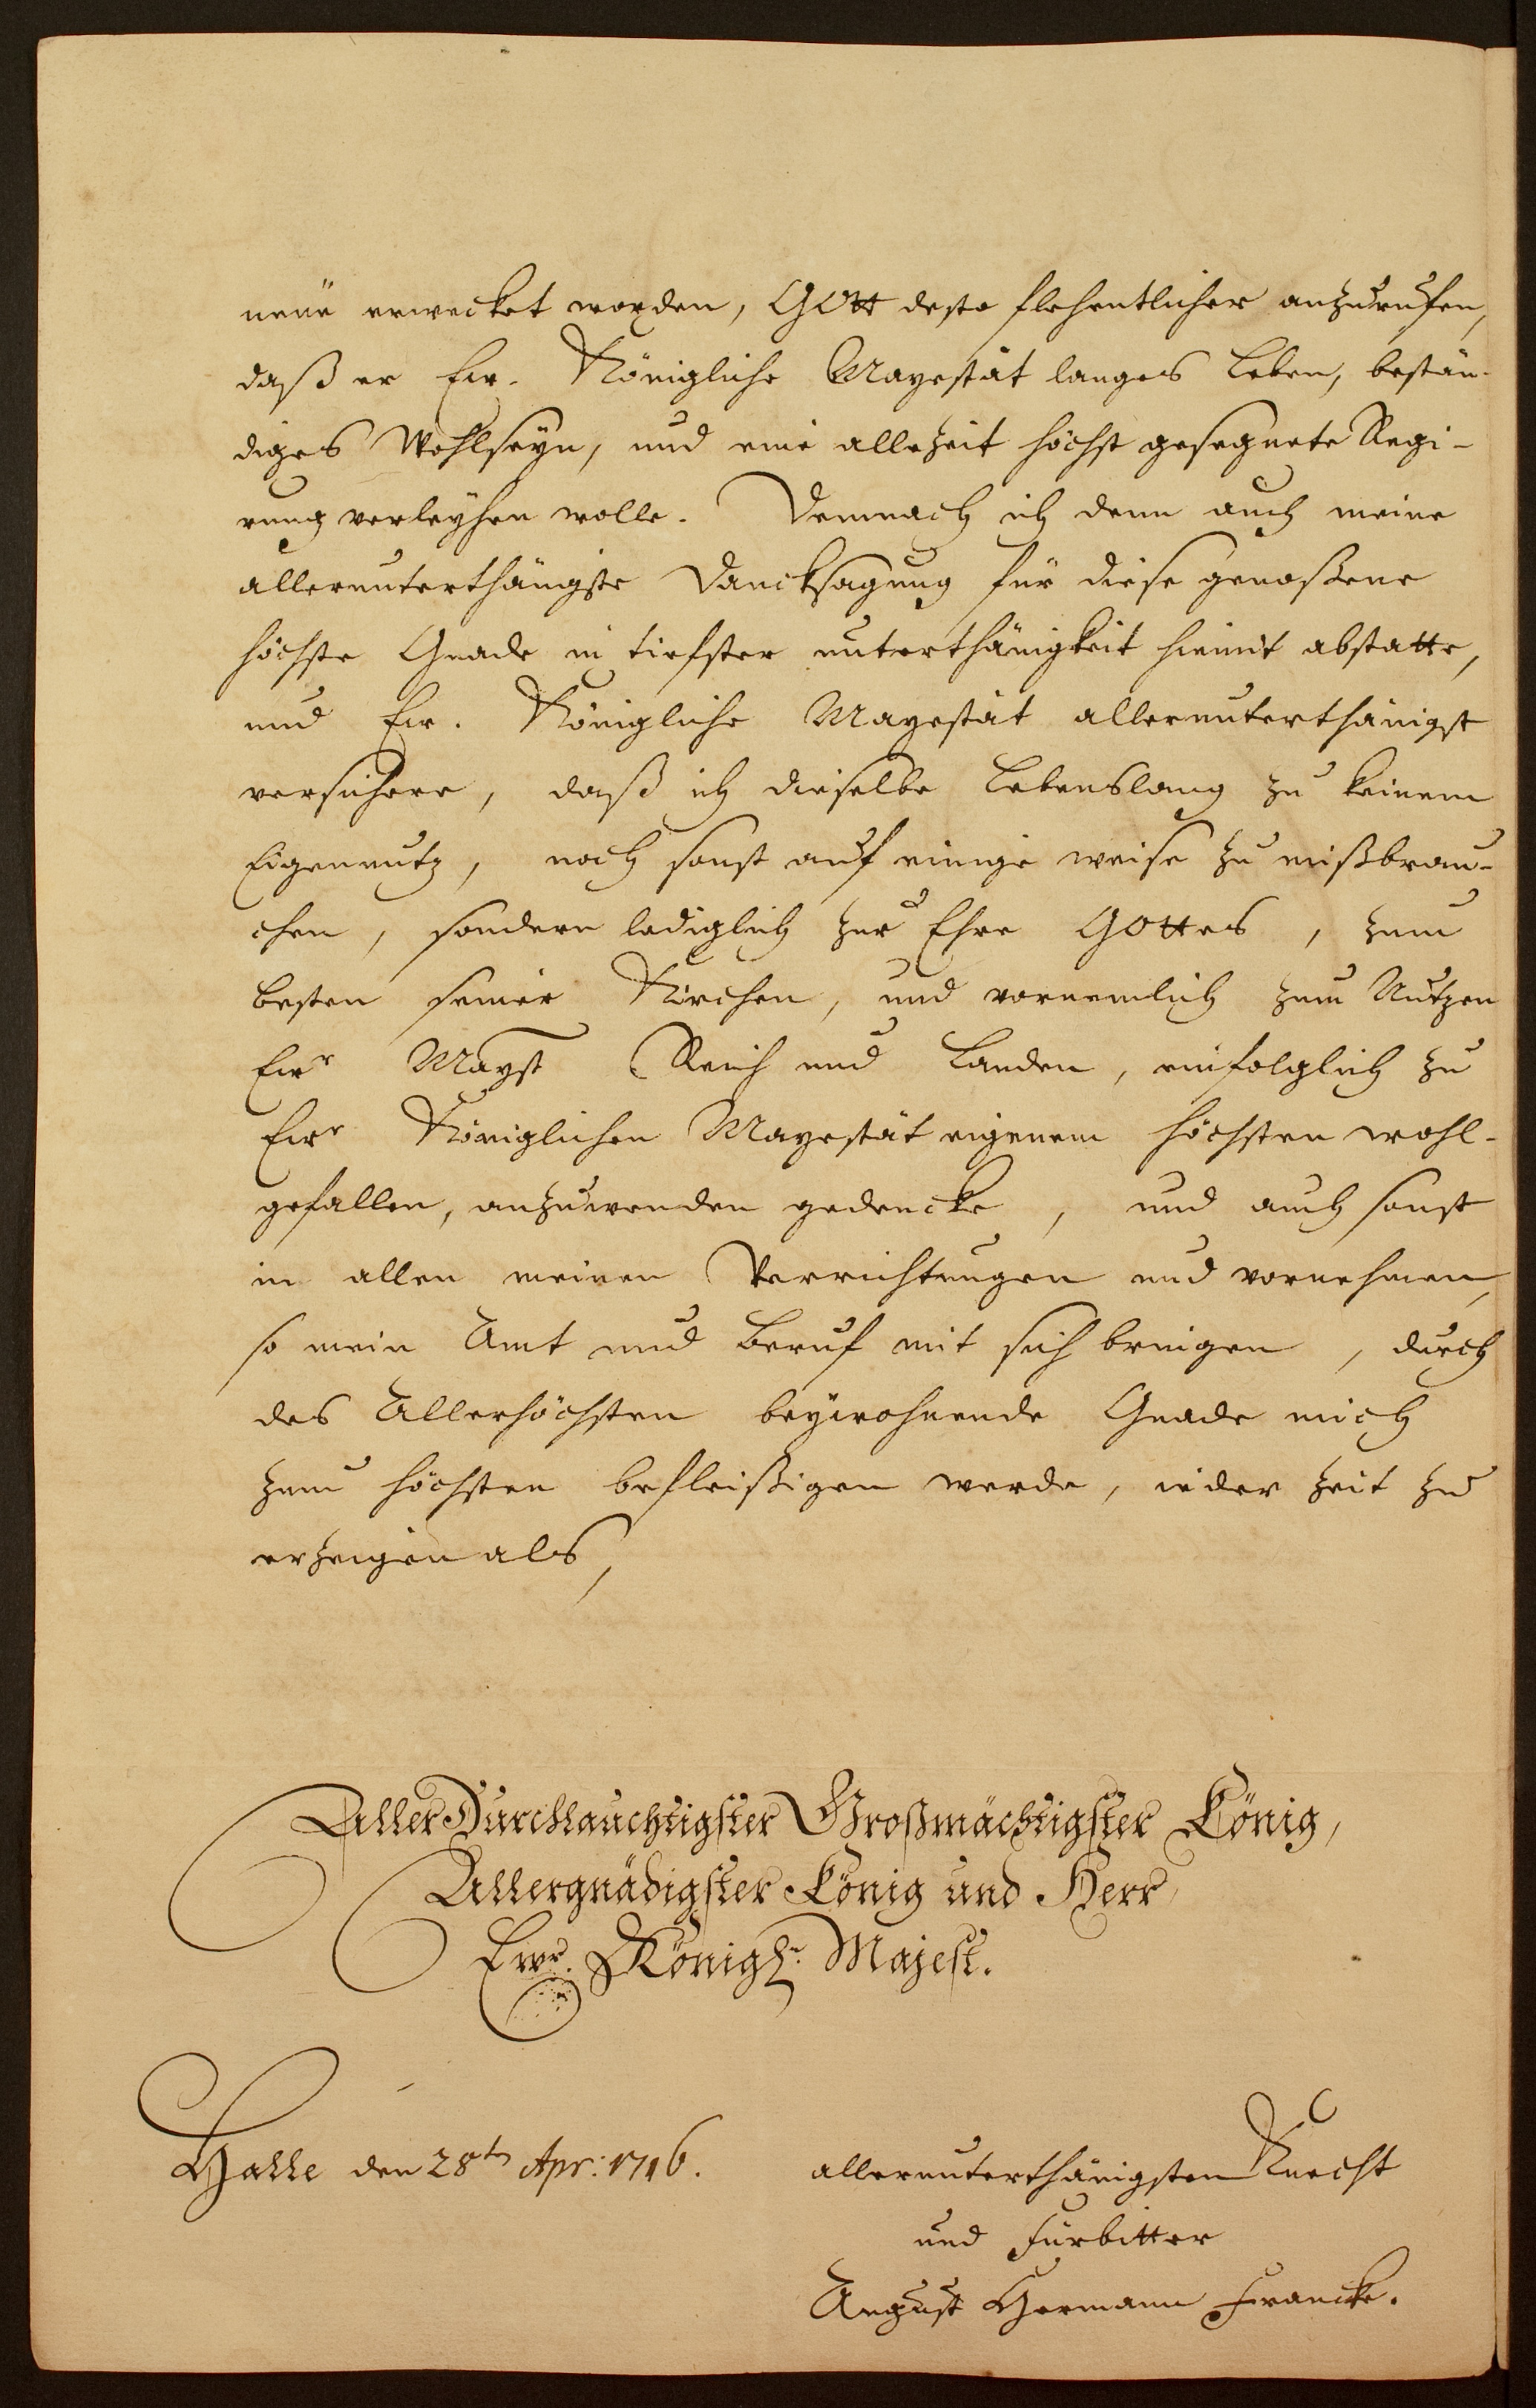 neüe erwecket worden, GOtt desto flehentlicher anzuruffen,
daß er Ew. Königliche Mayestät langes Leben, bestän-
diges Wohlseyn, und eine allezeit höchst gesegnete Regi-
rung verleyhen wolle. Demnach ich denn auch meine
allerunterthänigste Dancksagung für diese genoßene
höchste Gnade in tiefster unterthänigkeit hiemit abstatte,
und Ew. Königliche Mayestät allerunterthänigst
versichere, daß ich dieselbe Lebenslang zu keinem
Eigennutz, noch sonst auf einige weise zu mißbrau-
chen, sondern lediglich zur Ehre GOttes, zum
besten seiner Kirchen, und vornemlich zum Nutzen
Ewr Mayst Reich und Landen, einfolglich zu
Ewr Königlichen Mayestät eigenem höchsten wohl-
gefallen, anzuwenden gedencke, und auch sonst
in allen meinen Verrichtungen und vornehmen,
so mein Amt und Beruf mit sich bringen, durch
des Allerhöchsten beywohnende Gnade mich
zum höchsten befleißigen werde, ieder Zeit zu
erzeigen als,
AllerDurchlauchtigster Großmächtigster König,
Allergnädigster König und Herr,
Ewr. Königl. Majest.
Halle den 28ten Apr: 1716.
allerunterthänigsten Knecht
und Fürbitter
August Hermann Francke.